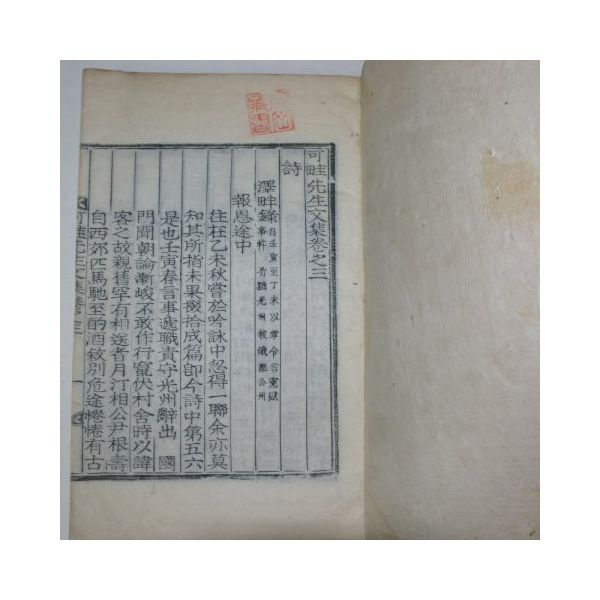 可畦先生文集卷之三
詩
澤畔錄
自壬寅至丁未以掌令言冤獄
事忤 旨謫光州
報恩途中
往在乙未秋嘗於吟詠中忽得一聯余亦莫
知其所指未果掇拾成篇卽今詩中第五六
是也壬寅春言事遞職責守光州辭出 國
門聞朝論漸峻不敢作行竄伏村舍時以諱
客之故親舊罕有相送者月汀相公尹根壽
自西郊匹馬馳至酌酒敘別危途惓惓有古
可畦先生文集卷之三
一